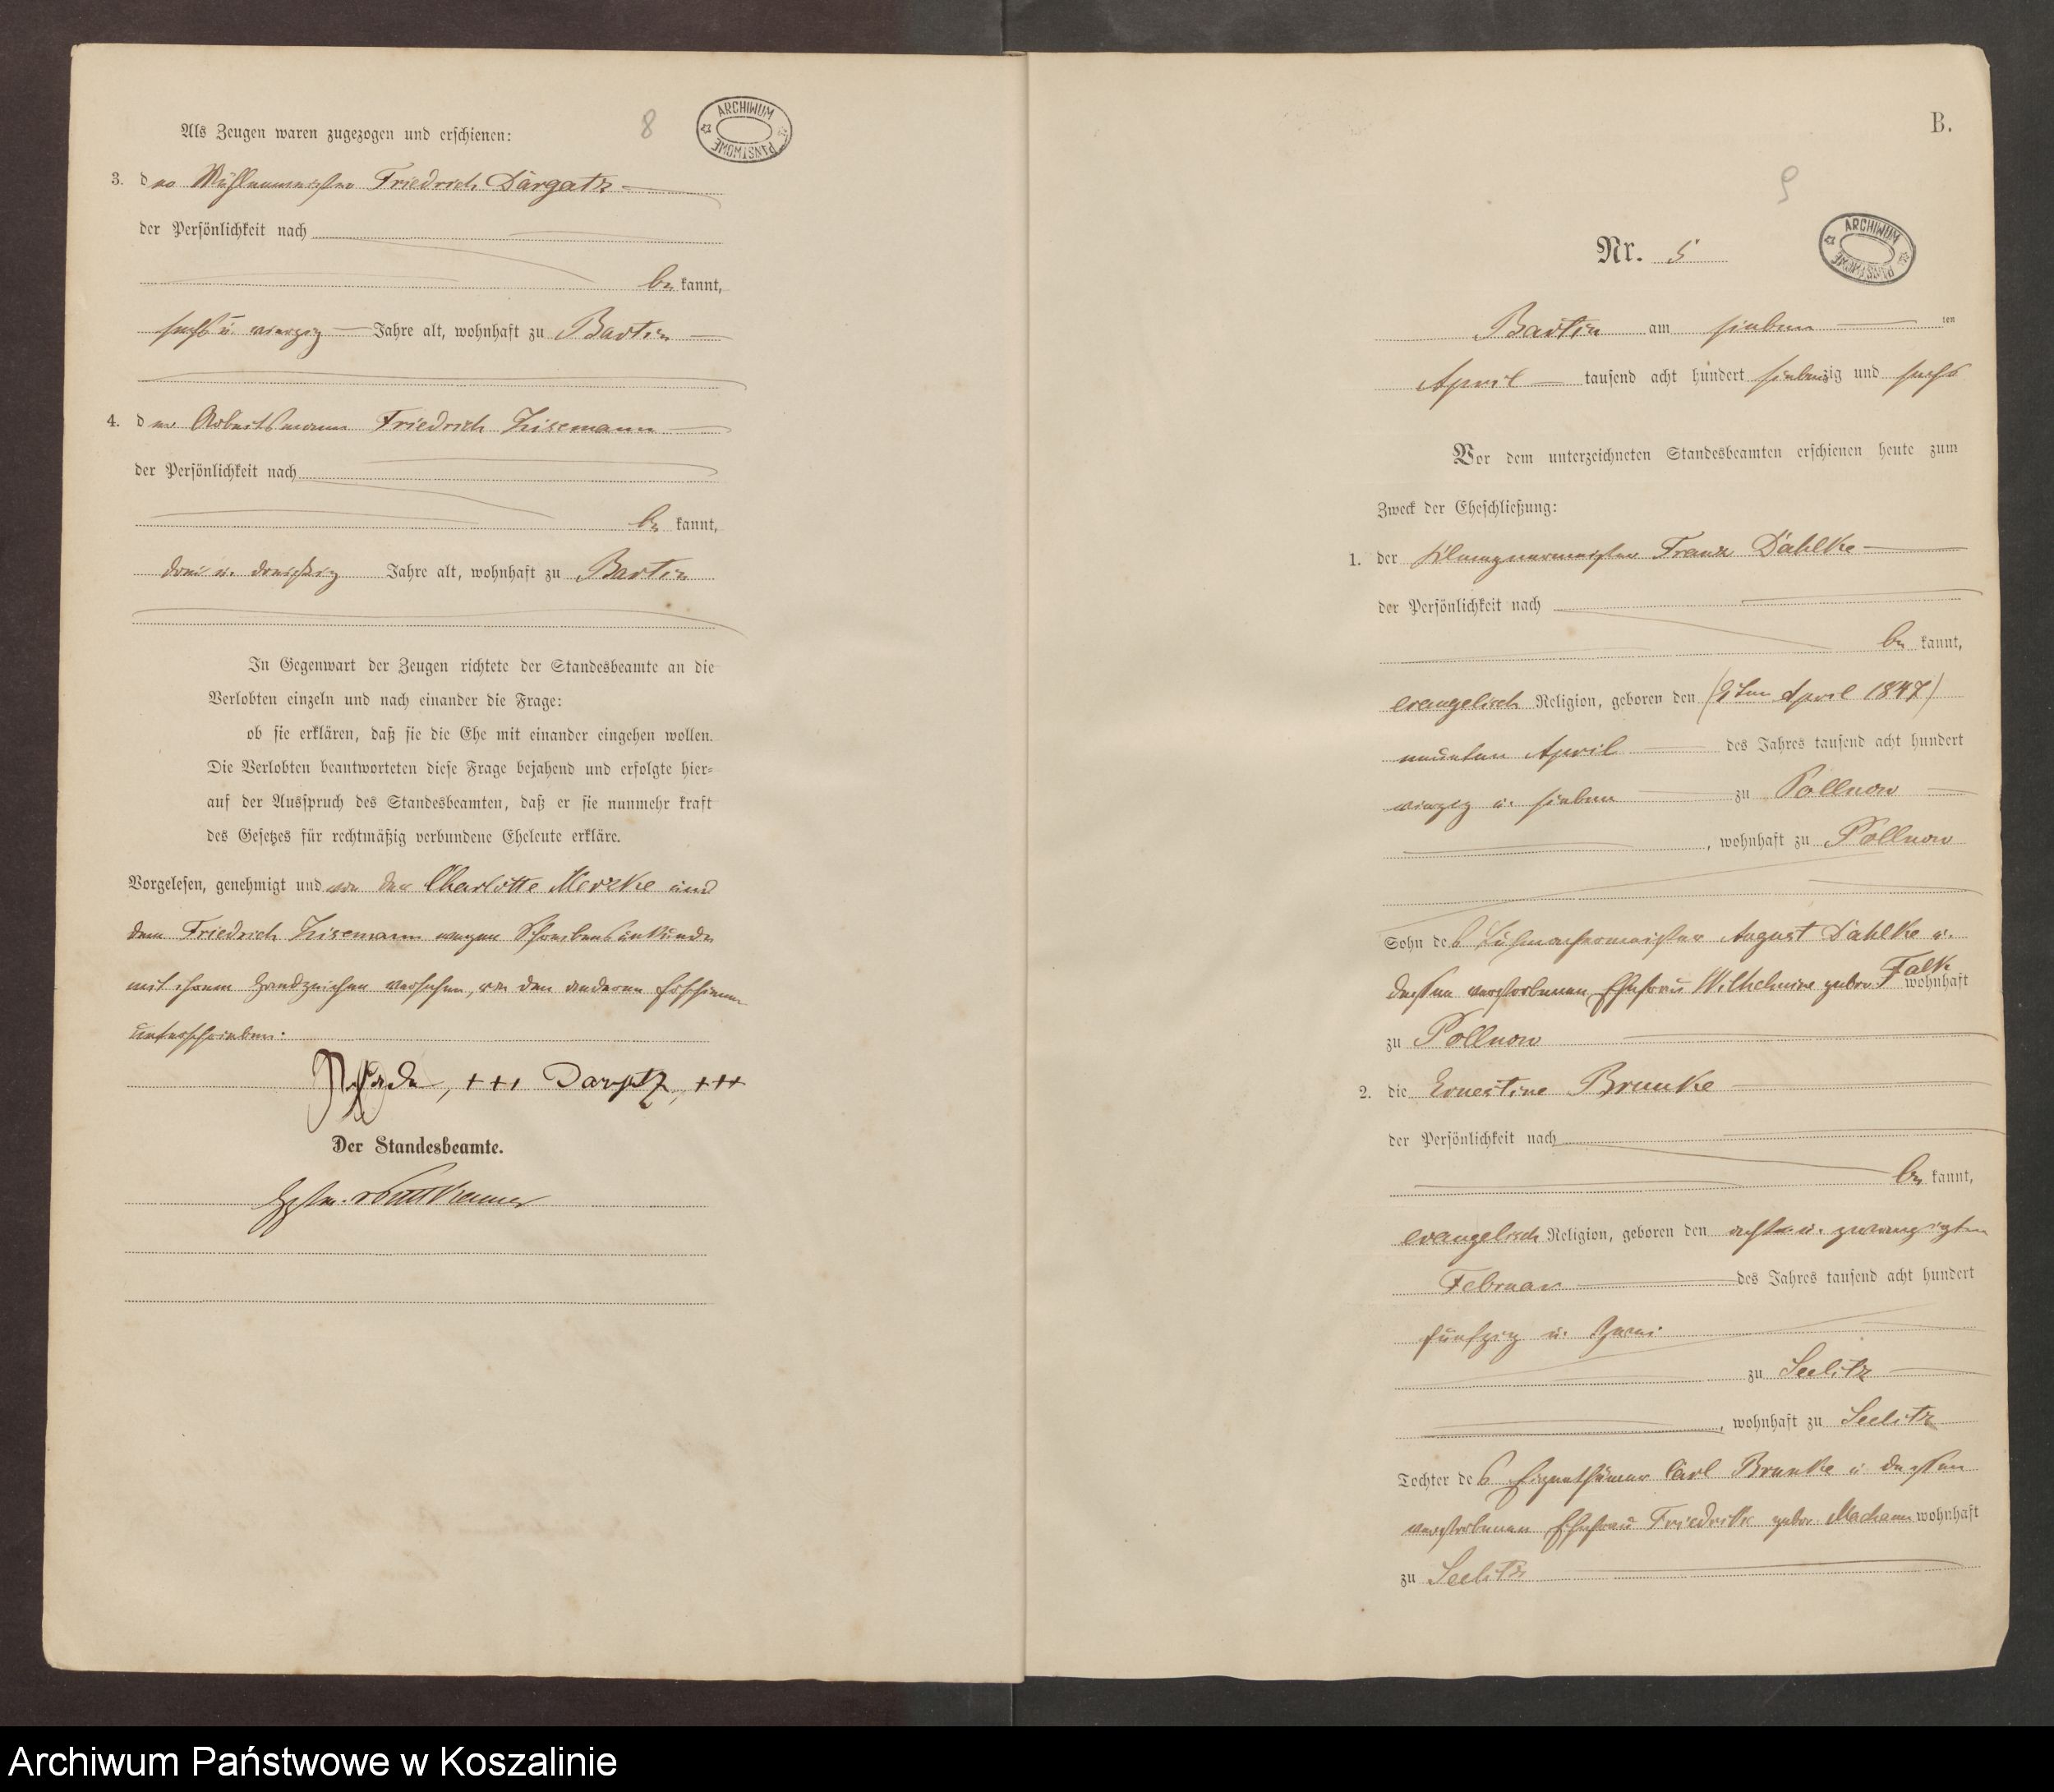 8
ARCHIWUM PAŃSTWOWE
Als Zeugen waren zugezogen und erschienen:
3. der Mühlenmeister Friedrich Dargatz
der Persönlichkeit nach
be kannt,
sechs u. vierzig Jahre alt, wohnhaft zu Bartin
4. der Arbeitsmann Friedrich Zisemann
der Persönlichkeit nach
be kannt,
drei u. dreißig Jahre alt, wohnhaft zu Bartin
In Gegenwart der Zeugen richtete der Standesbeamte an die
Verlobten einzeln und nach einander die Frage:
ob sie erklären, daß sie die Ehe mit einander eingehen wollen.
Die Verlobten beantworteten diese Frage bejahend und erfolgte hier-
auf der Ausspruch des Standesbeamten, daß er sie nunmehr kraft
des Gesetzes für rechtmäßig verbundene Eheleute erkläre.
Vorgelesen, genehmigt und von der Charlotte Merzke und
dem Friedrich Zisemann wegen Schreibensunkunde
mit ihrem Handzeichen versehen, von den anderen Erschienenen
unterschrieben.
+++ Dargatz, +++
Der Standesbeamte.
B.
9
ARCHIWUM PAŃSTWOWE
Nr. 5
Bartin am sieben ten
April tausend acht hundert siebenzig und sechs
Vor dem unterzeichneten Standesbeamten erschienen heute zum
Zweck der Eheschließung:
1. der Klempnermeister Franz Dahlke
der Persönlichkeit nach
be kannt,
evangelisch Religion, geboren den (9ten April 1847)
neunten April des Jahres tausend acht hundert
vierzig u. sieben zu Pollnow
, wohnhaft zu Pollnow
Sohn des August Dahlke u.
dessen verstorbenen Ehefrau Wilhelmine gebor. Falk wohnhaft
zu Pollnow
2. die Ernestine Brunke
der Persönlichkeit nach
be kannt,
evangelisch Religion, geboren den acht u. zwanzigsten
Februar des Jahres tausend acht hundert
fünfzig u. zwei
zu Seelitz
, wohnhaft zu Seelitz
Tochter des Eigenthümer Carl Brunke u. dessen
verstorbenen Ehefrau Friedrike gebor. wohnhaft
zu Seelitz
Archiwum Państwowe w Koszalinie